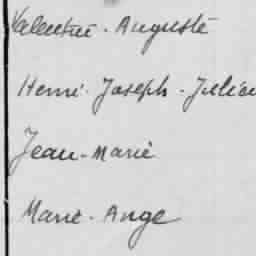 Valentin - Auguste
Henri - Joseph - Julien
Jean - Marie
Marie - Ange